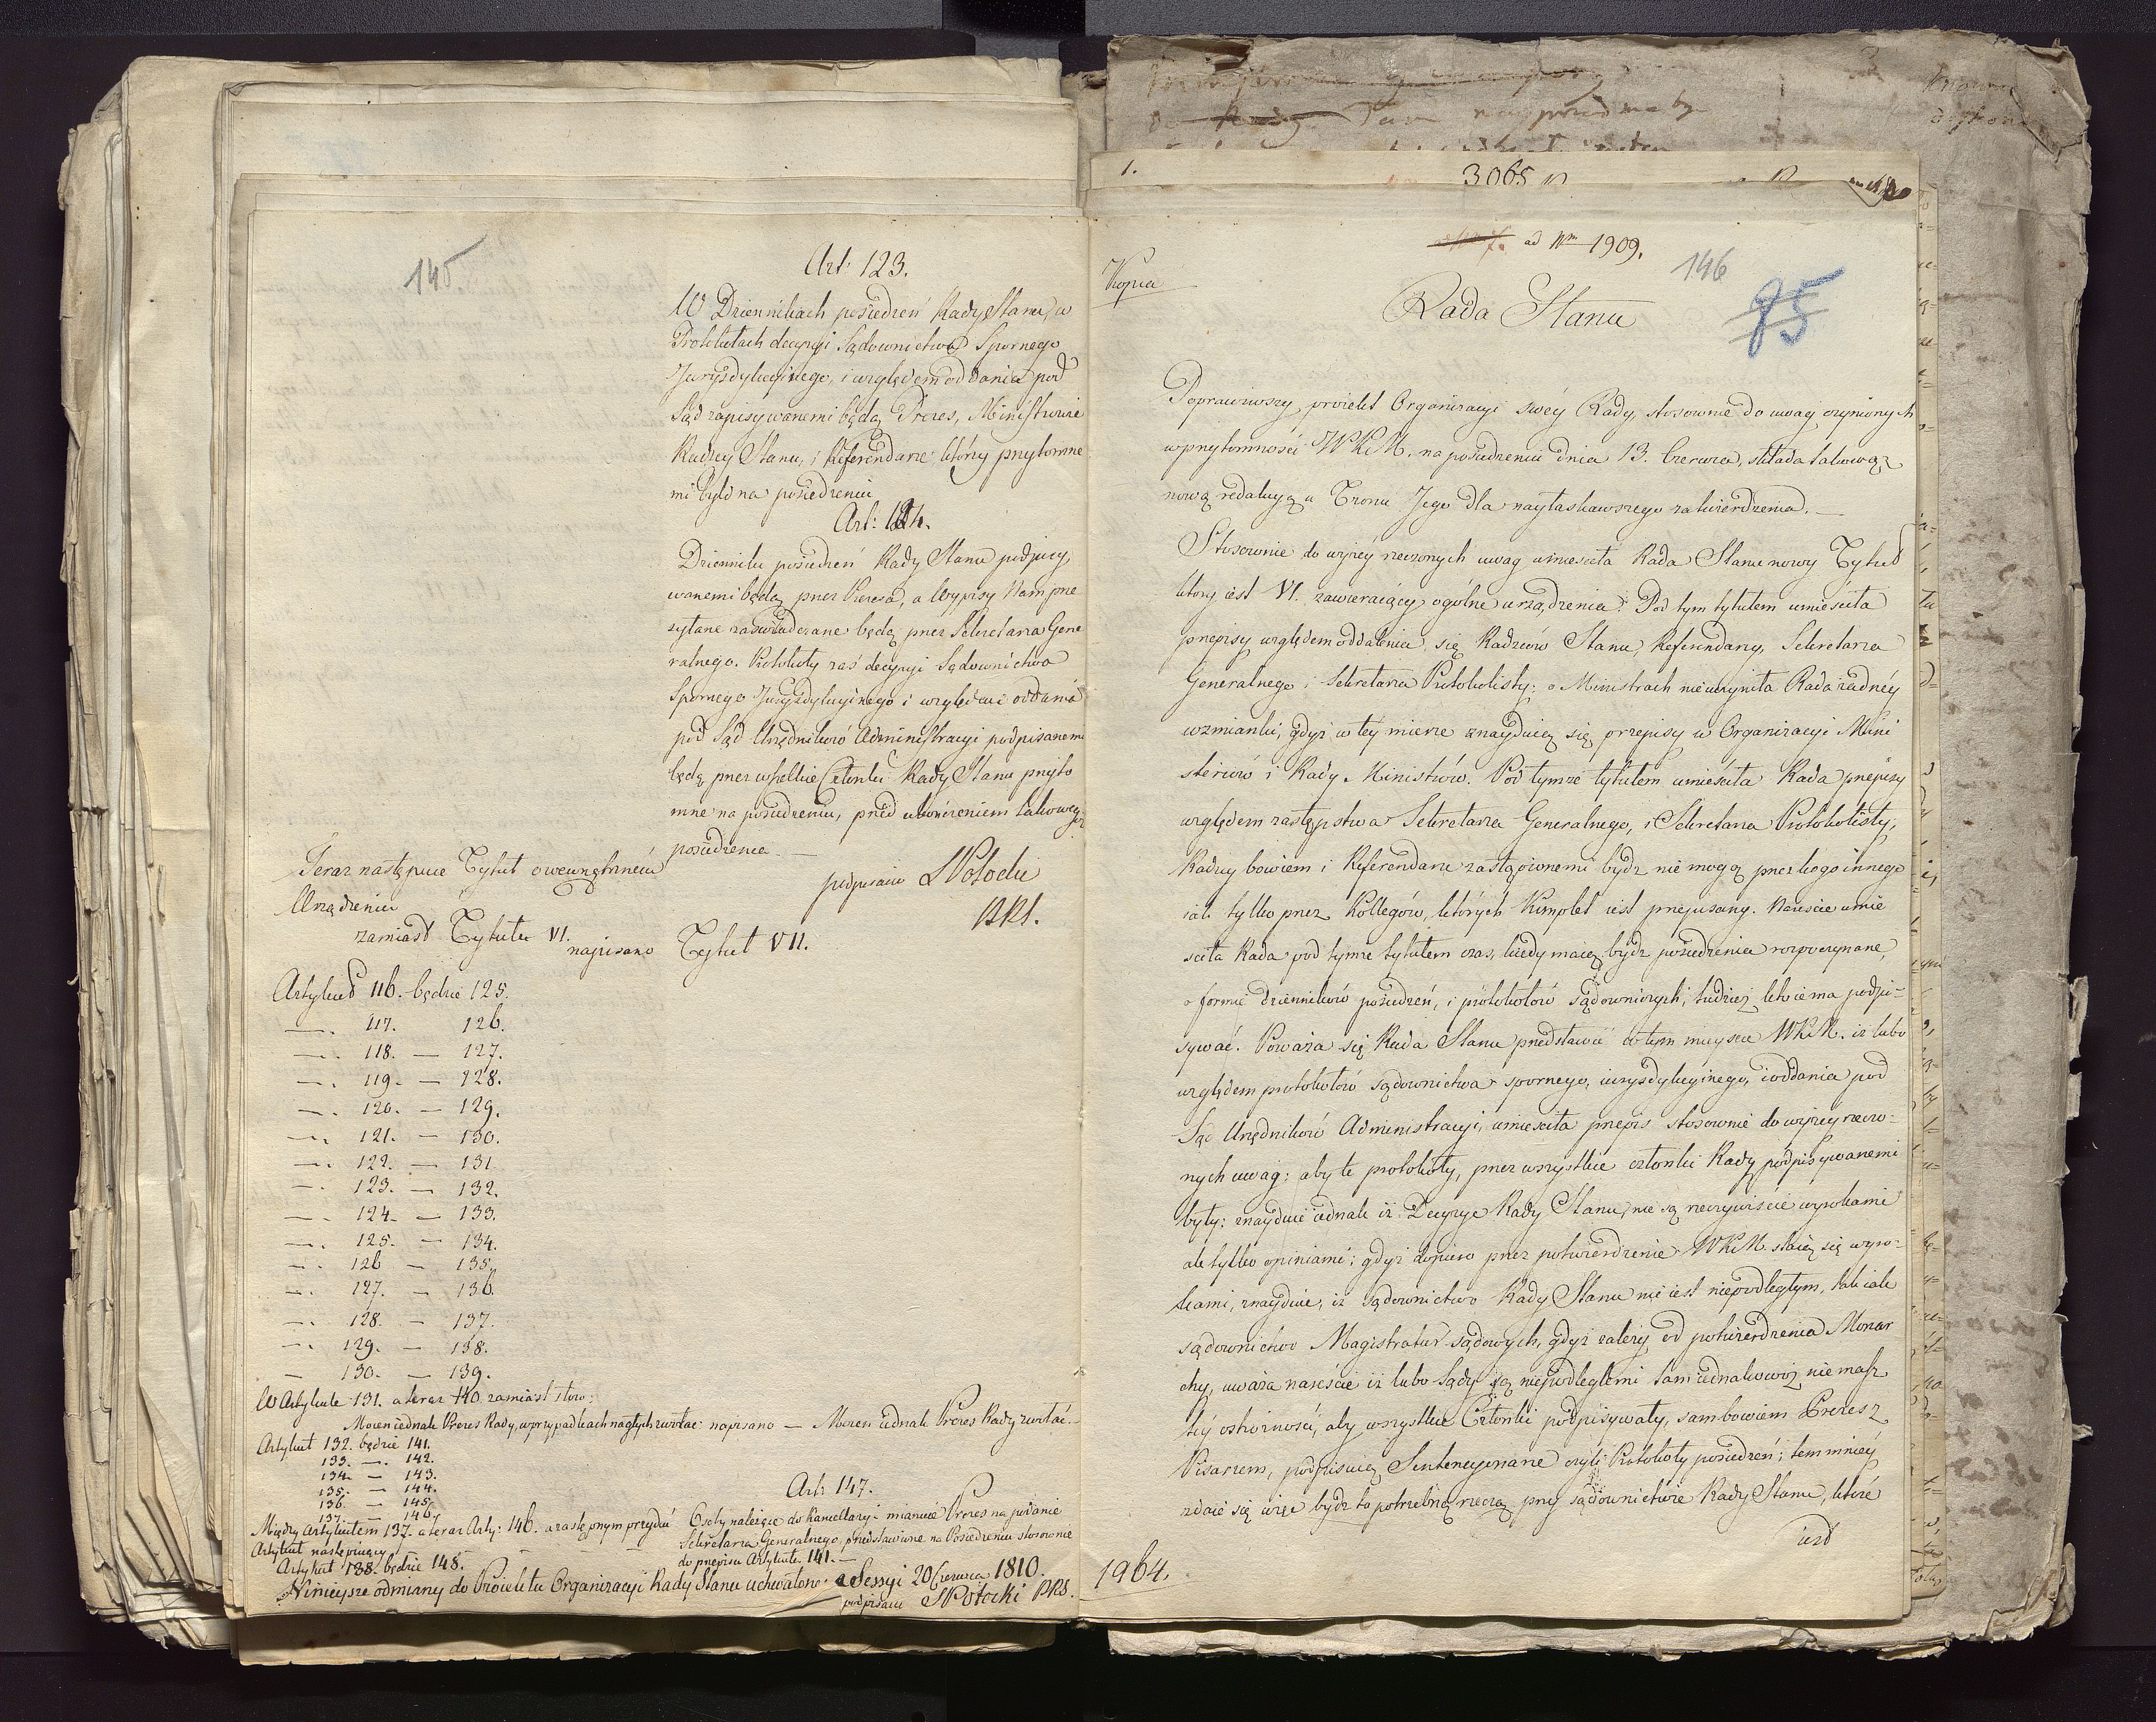 145.
Art: 123.
W Dziennikach posiedzeń Rady Stanu, w
Protokułach decyzyi Sądownictwa Spornego
Juryzdykcyinego, i względem oddania pod
Sąd zapisywanemi będą Prezes, Ministrowie
Radzcy Stanu, i Referendarze którzy przytomne
mi byli na posiedzeniu
Art: 124.
Dzienniki posiedzeń Rady Stanu podpisy
wanemi będą przez Prezesa, a Wypisy Nam prze
syłane zaświadczane będą przez Sekretarza Gene
ralnego. Protokuły zaś decyzyi Sądownictwa
Spornego Juryzdykcyinego i względem oddania
pod Sąd Urzędników Administracyi podpisanemi
będą przez wszelkie Członki Rady Stanu przyto
mne na posiedzeniu, przed ukończeniem takowegoż
posiedzenia. —
podpisano S Potocki
PRS.
Teraz następuie Tytuł o wewnętrzném
Urządzeniu
zamiast Tytułu VI.
napisano Tytuł VII.
Artykuł 116. będzie 125.
—. 117. 126.
—. 118. — 127.
—. 119. — 128.
—. 120. — 129.
—. 121. — 130.
—. 122. — 131.
—. 123. — 132.
—. 124. — 133.
—. 125. — 134.
—. 126 — 135.
—. 127. — 136.
—. 128. — 137.
—. 129. — 138.
— 130. — 139.
W Artykule 131. a teraz 140. zamiast słow:
Mocen iednak Prezes Rady, w przypadkach nagłych zwołać: napisano — Mocen iednak Prezes Rady zwołać. —
Artykuł 132. będzie 141.
133. —. 142.
134. — 143.
135. — 144.
136. — 145.
137. — 146.
Między Artykułem 137. a teraz Arty: 146. a następnym przydać
Artykuł następuiący —
Art: 147.
Osoby należące do Kancellaryi mianuie Prezes na podanie
Sekretarza Generalnego, przedstawione na Posiedzeniu stosownie
do przepisu Artykułu 141. —
Artykuł 138. będzie 148.
Ninieysze odmiany do Proiektu Organizacyi Rady Stanu uchwalono: a Sessyi 20 Czerwca 1810.
podpisano S Potocki PRS.
1.
3065
ad Nm 1909.
146
85
Kopia
Rada Stanu
Poprawiwszy proiekt Organizacyi swéy Rady, stosownie do uwag czynionych
w przytomności W K M. na posiedzeniu dnia 13. Czerwca, składa takowąż
nową redakcyą u Tronu Jego dla nayłaskawszego zatwierdzenia. —
Stosownie do wyżéy rzeczonych uwag umieściła Rada Stanu nowy Tytuł
który iest VI. zawieraiący ogólne urządzenia: Pod tym tytułem umieściła
przepisy względem oddalenia się Radzców Stanu, Referendarzy, Sekretarza
Generalnego i Sekretarza Protokolisty: o Ministrach nieuczyniła Rada żadnéy
wzmianki, gdyż w téy mierze znayduią się przepisy w Organizacyi Mini
steriów i Rady Ministrów. Pod tymże tytułem umieściła Rada przepisy
względem zastępstwa Sekretarza Generalnego, i Sekretarza Protokolisty,
Radzcy bowiem i Referendarze zastąpionemi bydź nie mogą przez kogo innego
iak tylko przez Kollegów, których Komplet iest przepisany. Nareście umie
ściła Rada pod tymże tytułem czas, kiedy maią bydź posiedzenia rozpoczynane,
o formie dzienników posiedzeń, i protokołów sądowniczych, tudzież kto ie ma podpi-
sywać. Poważa się Rada Stanu przedstawić w tem mieysce WKM. iż lubo
względem protokołów sądownictwa spornego, iuryzdykcyinego, i oddania pod
Sąd Urzędników Administracyi, umieściła przepis stosownie do wyżey rzeczo-
nych uwag; aby te protokoły, przez wszystkie członki Rady podpisywanemi
były; znayduie iednak iż Decyzye Rady Stanu, nie są rzeczywiście wyrokami
ale tylko opiniami; gdyż dopiero przez potwierdzenie WKM. staią się wyro-
kami, znayduie, iż sądownictwo Rady Stanu nie iest niepodległym, tak iak
sądownictwo Magistratur sądowych, gdyż zależy od potwierdzenia Monar
chy, uważa nareście iż lubo Sądy są niepodległemi tam iednakowoż nie masz
téy ostrożności, aby wszystkie Członki podpisywały, sam bowiem Prezes z
Pisarzem, podpisuią Sentencyonarz czyli Protokoły posiedzeń; tem mniéy
zdaie się więc bydź to potrzebną rzeczą przy sądownictwie Rady Stanu, które
iest
1964.